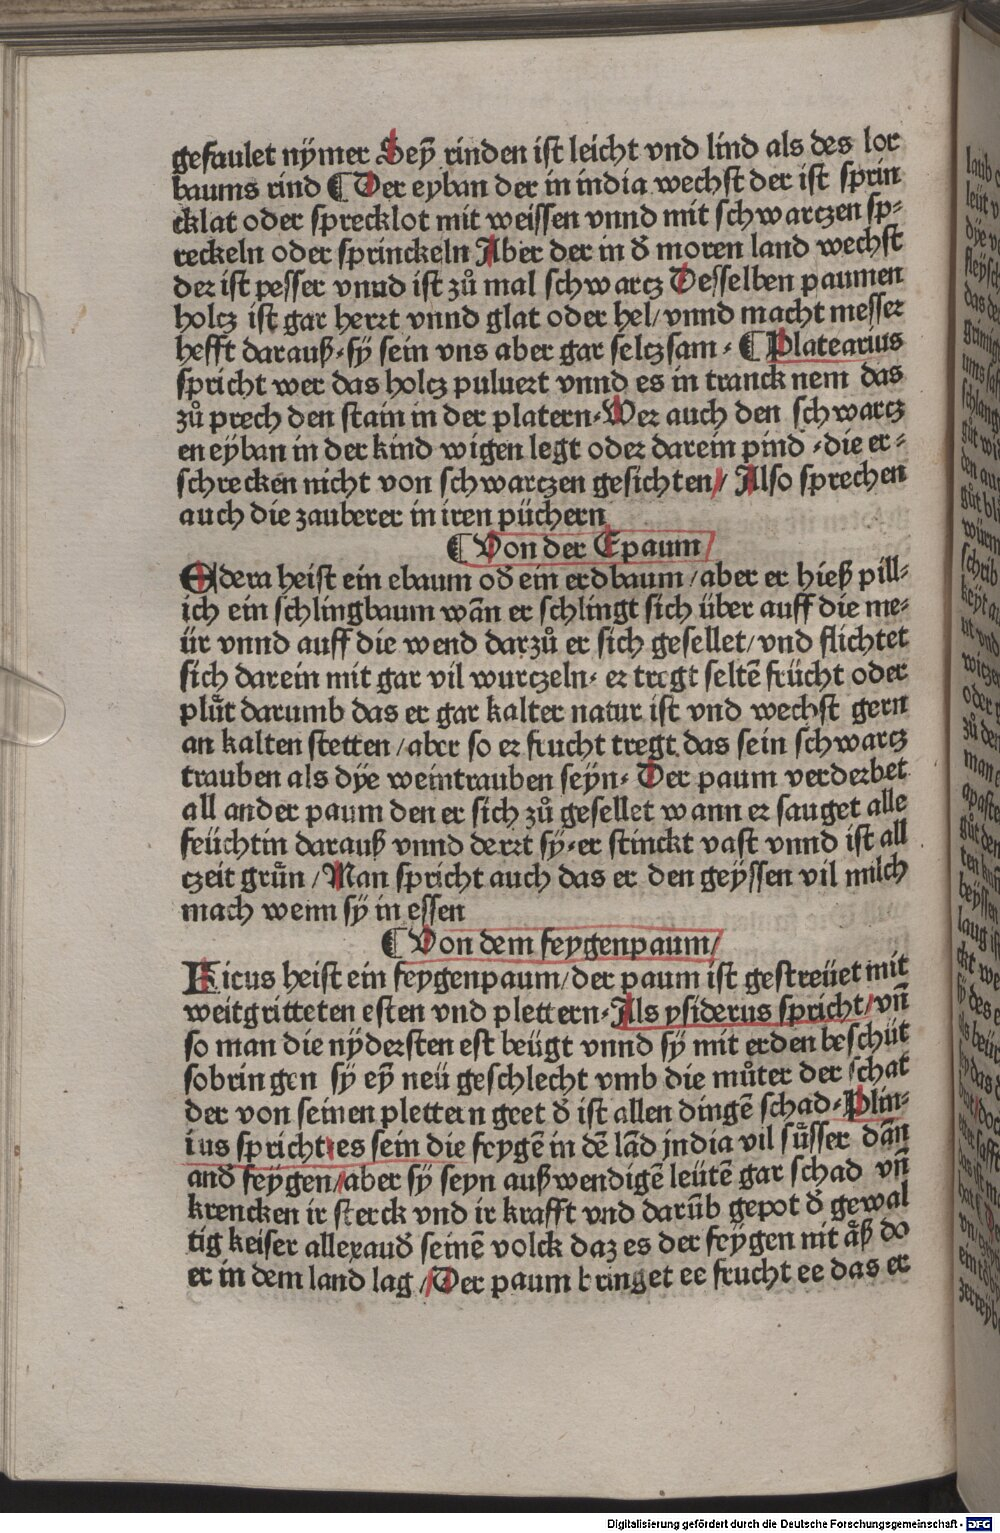 gefaulet nÿmer Seÿ rinden ist leicht vnd lind als des lor
baums rind ¶ Der eyban der in india wechst der ist sprin
cklat oder sprecklot mit weissen vnnd mit schwarczen sp⸗
reckeln oder sprinckeln Aber der in d̕ moren land wechst
der ist pesser vnnd ist zů mal schwarcz Desselben paumen
holcz ist gar herrt vnnd glat oder hel/ vnnd macht messer
hefft darauß⸗sÿ sein vns aber gar selczsam⸗ ¶ Platearius
spricht wer das holcz puluert vnnd es in tranck nem das
zů prech den stain in der platern⸗Wer auch den schwarcz
en eÿban in der kind wigen legt oder darein pind ⸗die er⸗
schrecken nicht von schwarczen gesichten/ Also sprechen
auch die zauberer in iren püchern
¶ Von der Epaum
Edera heist ein ebaum od̕ ein erdbaum /aber er hieß pill⸗
ich ein schlingbaum wañ er schlingt sich über auff die me⸗
ür vnnd auff die wend darzů er sich gesellet/ vnd flichtet
sich darein mit gar vil wurczeln⸗ er tregt seltē frücht oder
plůt darumb das er gar kalter natur ist vnd wechst gern
an kalten stetten /aber so er frucht tregt das sein schwarcz
trauben als dÿe weintrauben seÿn⸗ Der paum verderbet
all ander paum den er sich zů gesellet wann er sauget alle
feüchtin darauß vnnd derrt sÿ⸗er stinckt vast vnnd ist all
czeit grůn /Man spricht auch das er den geÿssen vil milch
mach wenn sÿ in essen
¶ Von dem feygenpaum/
Ficus heist ein feygenpaum/der paum ist gestreüet mit
weitgritteten esten vnd plettern⸗Als ysiderus spricht/vñ
so man die nÿdersten est beügt vnnd sÿ mit erden beschüt
sobringen sÿ eÿ neü geschlecht vmb die můter der schat
der von seinen plettern geet d̕ ist allen dingē schad⸗Plin⸗
ius spricht⸗es sein die feygē in dē lād jndia vil sůsser dāñ
and̕ feÿgen/aber sÿ seyn außwendigē leütē gar schad vñ
krencken ir sterck vnd ir krafft vnd darūb gepot d̕ gewal
tig keiser allexand̕ seinē volck daz es der feÿgen nit åß do
er in dem land lag /Der paum bringet ee frucht ee das er
Digitalisierung gefördert durch die Deutsche Forschungsgemeinschaft - DFG